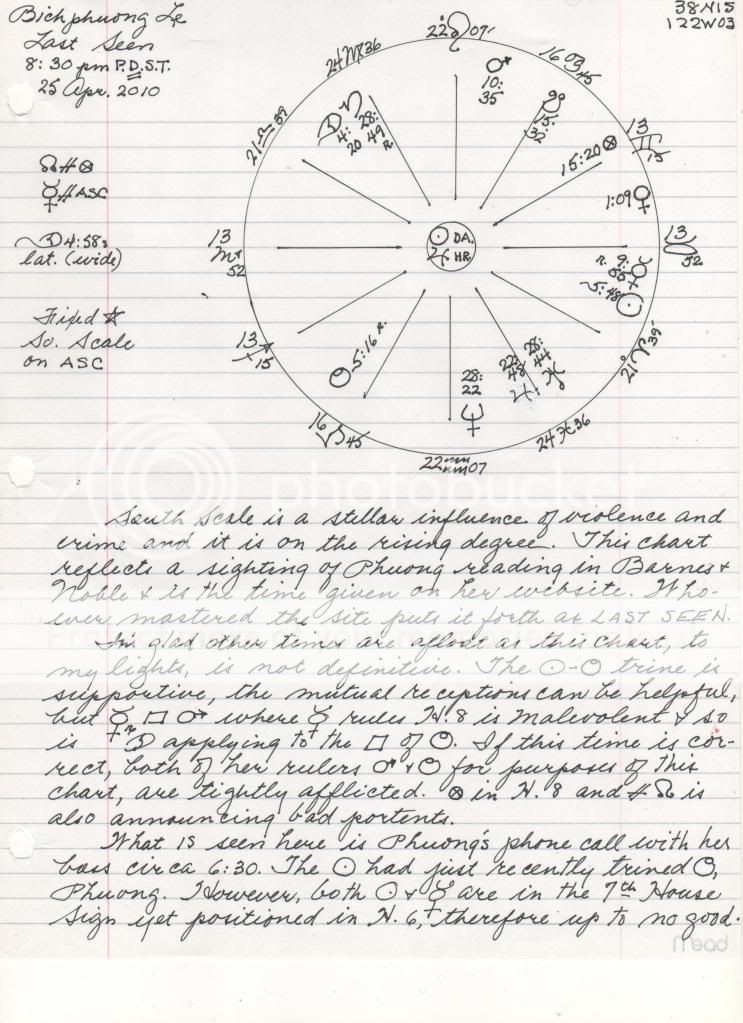 Bichphuong Le
Last Seen
8:30 pm P.D.S.T.
25 Apr. 2010
38N15
122W03
☊ # ⊗
☿ # ASC
☽ 4:58 s
lat. (wide)
Fixed ☆
So. Scale
on ASC
22 ♌ 07
16 ♋ 45
13 ♊ 15
13 ♉ 52
21 ♈ 39
24 ♓ 36
22 ♒ 07
16 ♑ 45
13 ♐ 15
13 ♏ 52
21 ♎ 39
24 ♍ 36
♂ 10:35
15:32
15:20 ⊗
1:09 ♀
☿ 9:55 R.
5:48 ☉
28:44
22:48 ♃
28:22 ♆
5:16 R.
☽ 4:20
28:49 R
☉ DA.
♃ HR.
South Scale is a stellar influence of violence and
crime and it is on the rising degree. This chart
reflects a sighting of Phuong reading in Barnes &
Noble & is the time given on her website. Who-
ever mastered the site puts it forth as LAST SEEN.
I'm glad other times are afloat as this chart, to
my lights, is not definitive. The ☉- trine is
supportive, the mutual receptions can be helpful,
but ☿ □ ♂ where ☿ rules H.8 is malevolent & so
is ☽ applying to the □ of. If this time is cor-
rect, both of her rulers ♂ & for purposes of this
chart, are tightly afflicted. ⊗ in H. 8 and # ☊ is
also announcing bad portents.
What is seen here is Phuong's phone call with her
boss circa 6:30. The ☉ had just recently trined,
Phuong. However, both ☉ & ☿ are in the 7th House
sign yet positioned in H. 6, therefore up to no good.
photobucket
Mead